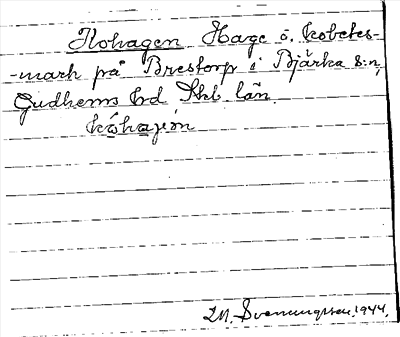 Kohagen Hage o. kobetes-
-mark på Brestorp i Bjärka s:n,
Gudhems hd Skb län.
kóhajen
M. Svenungsson, 1944,